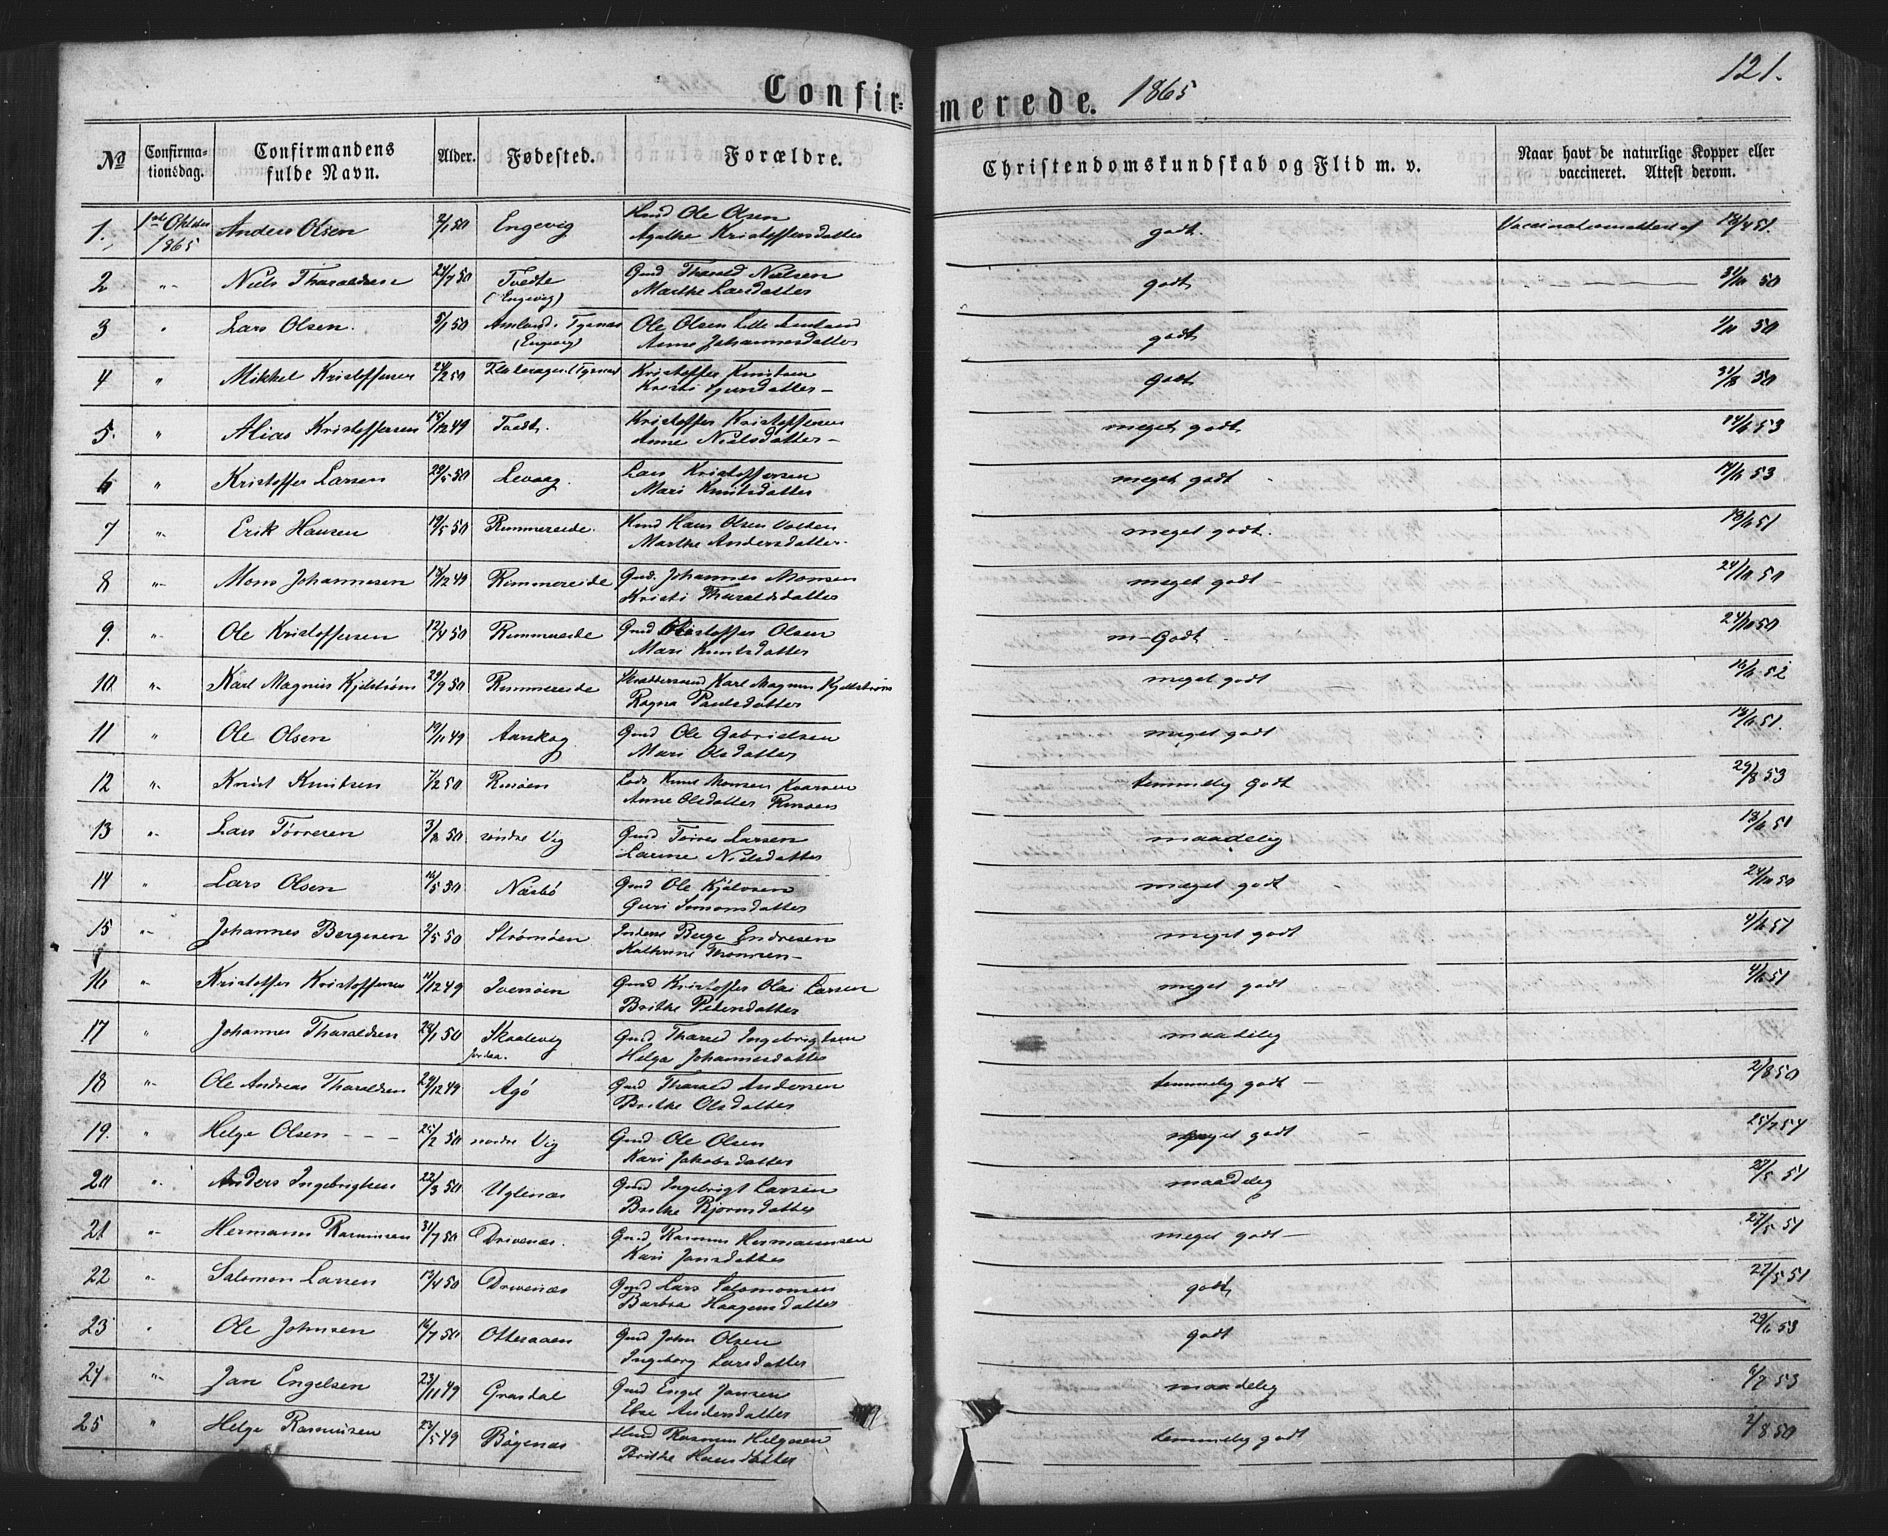 121.
Confirmerede. 1865
No Confirmationsdag. Confirmandens fulde Navn. Alder. Fødested. Forældre. Christendomskundskab og Flid m. v. Naar havt de naturlige Kopper eller vaccineret. Attest derom.
1. 1865 Anders Olsen 2/1 50 Engevig Ole Olsen godt. Vaccinationsattest af
Agathe Kristoffersdatter
2 "- Niels Tharaldsen 24/7 50 Tvedte Gmd Tharald Nielsen godt 31/10 50
(Engevig) Marthe Larsdatter
3 " Lars Olsen. 5/1 50 Amland. Tysnæs Ole Olsen Lille Amland godt 50
(Engevig) Anne Johannesdatter
4 " Mikkel Kristoffersen 50 (Tysnæs) Kristoffer Knutsen godt 31/8 50
Kristi
5. " Alias Kristoffersen 15/12 49 Tvedt. Kristoffer Kristoffersen meget godt 14/6 53
Anne Nielsdatter -
6 " Kristoffer Larsen 50 Levaag. Lars Kristoffersen meget godt 53
Mari Knutsdatter
7 "- Erik Hansen 19/5 50 Rimmereide. Hans Olsen meget godt. 13/6 51
Marthe Andersdatter
8 "- Mons Johannesen 49 Rimmereide Gmd. Johannes Monsen meget godt 24/10 50
Kristi Tharaldsdatter
9. "- Ole Kristoffersen 12/4 50 Rimmereide Gmd Kristoffer Olsen m-Godt. 24/10 50
Mari Knutsdatter
10 "- Karl Magnus Kjelstrøm 29/9 50 Rimmereide Karl Magnus Kjellstrøm meget godt 16/6 52
Ragna Paulsdatter
11 " Ole Olsen 19/11 49 Aarskog Gmd Ole Gabrielsen meget godt 13/6 51.
Mari Olsdatter
12 " Knut Knutsen 7/2 50 Knut Monsen temmelig godt 29/8 53
Anne Olsdatter
13 "- Lars Tørresen 3/2 50 søndre Vig Gmd Tørres Larsen maadelig 13/6 51
Larine Nilsdatter
14 " Lars Olsen 16/5 50 Næsbø Gmd Ole meget godt 24/10 50
Guri Simonsdatter
15 "- Johannes Bergesen 2/5 50 Strømøen Berge Endresen meget godt 4/6 51
Kathrine
16 "- Kristoffer Kristoffersen 11/12 49 Iversøen Gmd Kristoffer Olai Larsen meget godt 4/6 51
Brithe Petersdatter
17 " Johannes Tharaldsen 50 Skaalevig Gmd Tharald Ingebrigtsen maadelig
Helga Johannesdatter
18 "- Ole Andreas Tharaldsen 49 Agø Gmd Tharald Andersen temmelig godt - 2/8 50
Brithe Olsdatter
19. " Helge Olsen - - - 25/2 50 nordre Vig Gmd Ole Olsen meget godt
Kari Jakobsdatter
20 "- Anders Ingebrigtsen 22/3 50 Uglenæs Gmd Ingebrigt Larsen maadelig 51
Brithe Bjørnsdatter
21 "- Hermann Rasmusen 31/7 50 Drivenæs. Gmd Rasmus Hermannsen meget godt - 27/5 51
Kari Jansdatter
22 "- Salomon Larsen 13/4 50 Drivenæs Gmd Lars Salomonsen godt 27/5 51
Barbra Haagensdatter
23 Ole Johnsen 16/7 50 Otteraaen Gmd John Olsen godt 53
Ingeborg Larsdatter
24 "- Jan Engelsen 23/11 49 Grasdal Gmd Engel Jansen maadelig 6/7 53
Else Andersdatter
25 " Helge Rasmusen 23/5 49 Bøgenæs Rasmus Helgesen temmelig godt 2/8 50
Brithe Hansdatter